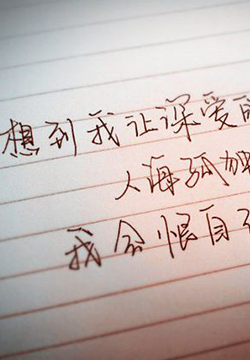 想到我让深爱的
人海孤独
我会恨自己